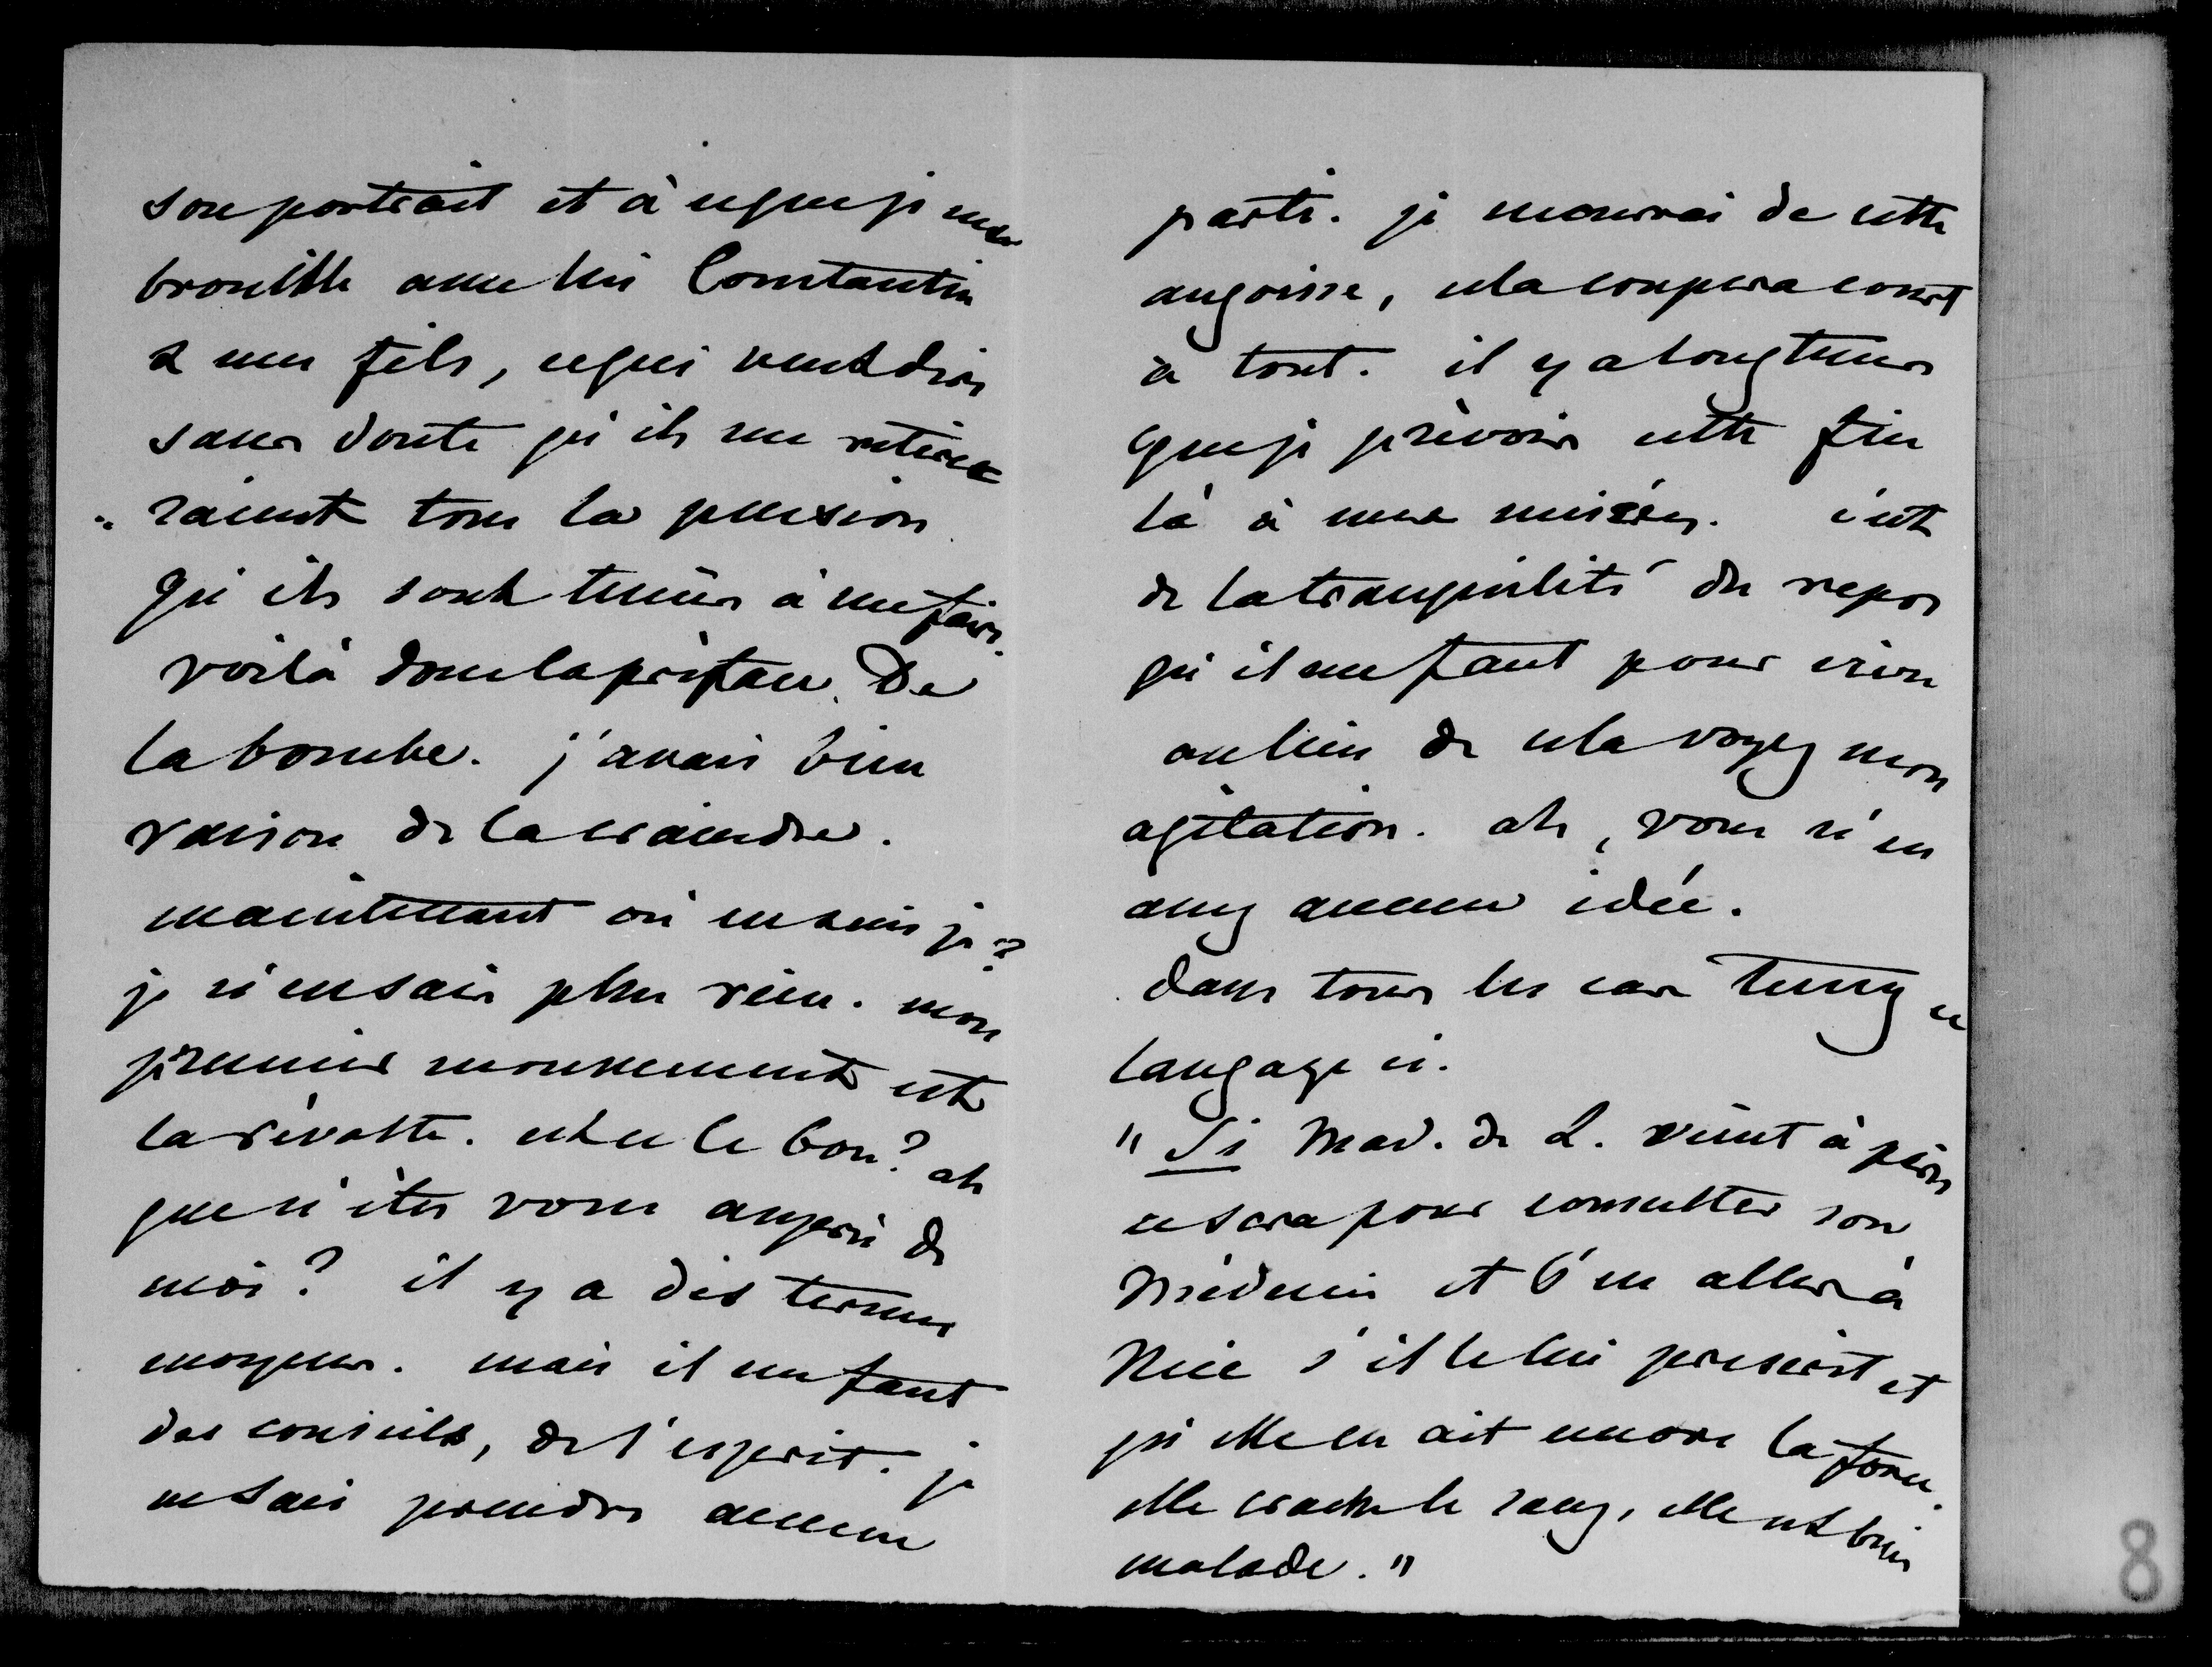 son portrait et à ce que je me
brouille avec lui Constantin
& mes fils, ce qui veut dire
sans doute qu'ils me retire
raient tous la pension
qu'ils sont tenus à me faire.
voilà donc la préface. De
la bombe. j'avais bien
raison de la craindre.
maintenant où en suis je?
je n'en sais plus rien. mon
premier mouvement est
la révolte. est ce le bon? ah
que n'êtes vous auprès de
moi? il y a des termes
moyens. mais il me faut
des conseils, de l'esprit. je
ne sais prendre aucun
parti. je mourrai de cette
angoisse, cela coupera court
à tout. il y a longtems
que je prévois cette fin
là à mes misères. c'est
de la tranquilité du repos
qu'il me faut pour vivre
au lieu de cela voyez mon
agitation. ah, vous n'en
avez aucune idée.
dans tous les cas tenez ce
langage ci.
"Si Mad. de L. vient à paris
ce sera pour consulter son
Médecin et s'en aller à
Nice s'il le lui prescrit et
qu'elle en ait encore la force.
elle crache le sang, elle est bien
malade."
8